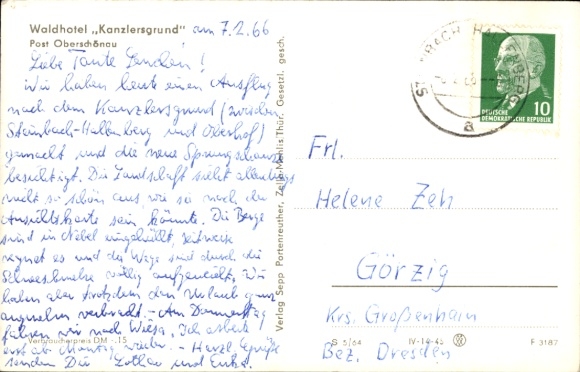 Waldhotel „Kanzlersgrund" am 7.2.66
Post Oberschönau
Liebe Tante Lenchen!
Wir haben heute einen Ausflug
nach dem Kanzlersgrund (zwischen
Steinbach-Hallenberg und Oberhof)
gemacht und die neue Sprungschanze
besichtigt. Die Landschaft sieht allerdings
nicht so schön aus, wie sie nach der
Ansichtskarte sein könnte. Die Berge
sind in Nebel eingehüllt, zeitweise
regnet es und die Wege sind durch die
Schneeschmelze völlig aufgeweicht. Wir
haben aber trotzdem den Urlaub ganz
angenehm verbracht. - Am Donnerstag
fahren wir nach Wiesa. Ich arbeite
erst ab Montag wieder. - Herzl. Grüße
senden Dir Lothar und
Verbraucherpreis DM -.15
Verlag Sepp Portenreuther, Zella-Mehlis/Thür. Gesetzl. gesch.
a
10
DEUTSCHE
DEMOKRATISCHE REPUBLIK
Frl.
Helene Zeh
Görzig
Krs. Großenhain
Bez. Dresden
S 5/64 IV-14-45 F 3187